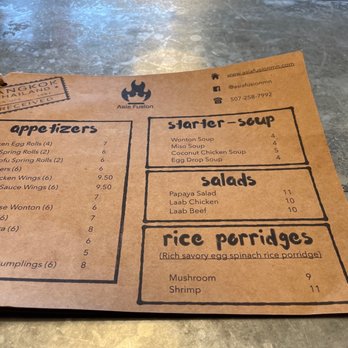 BANGKOK
THAILAND
RECEIVED
Asia Fusion
www.asiafusionmn.com
@asiafusionmn
507-258-7992
appetizers
ken Egg Rolls (4) 7
Spring Rolls (2) 6
ofu Spring Rolls (2) 6
ers (6) 6
hicken Wings (6) 9.50
Sauce Wings (6) 9.50
se Wonton (6) 7
6) 7
ra (6) 8
6
5
umplings (6) 8
starter-soup
Wonton Soup 4
Miso Soup 4
Coconut Chicken Soup 5
Egg Drop Soup 4
salads
Papaya Salad 11
Laab Chicken 10
Laab Beef 10
rice porridges
(Rich savory egg spinach rice porridge)
Mushroom 9
Shrimp 11